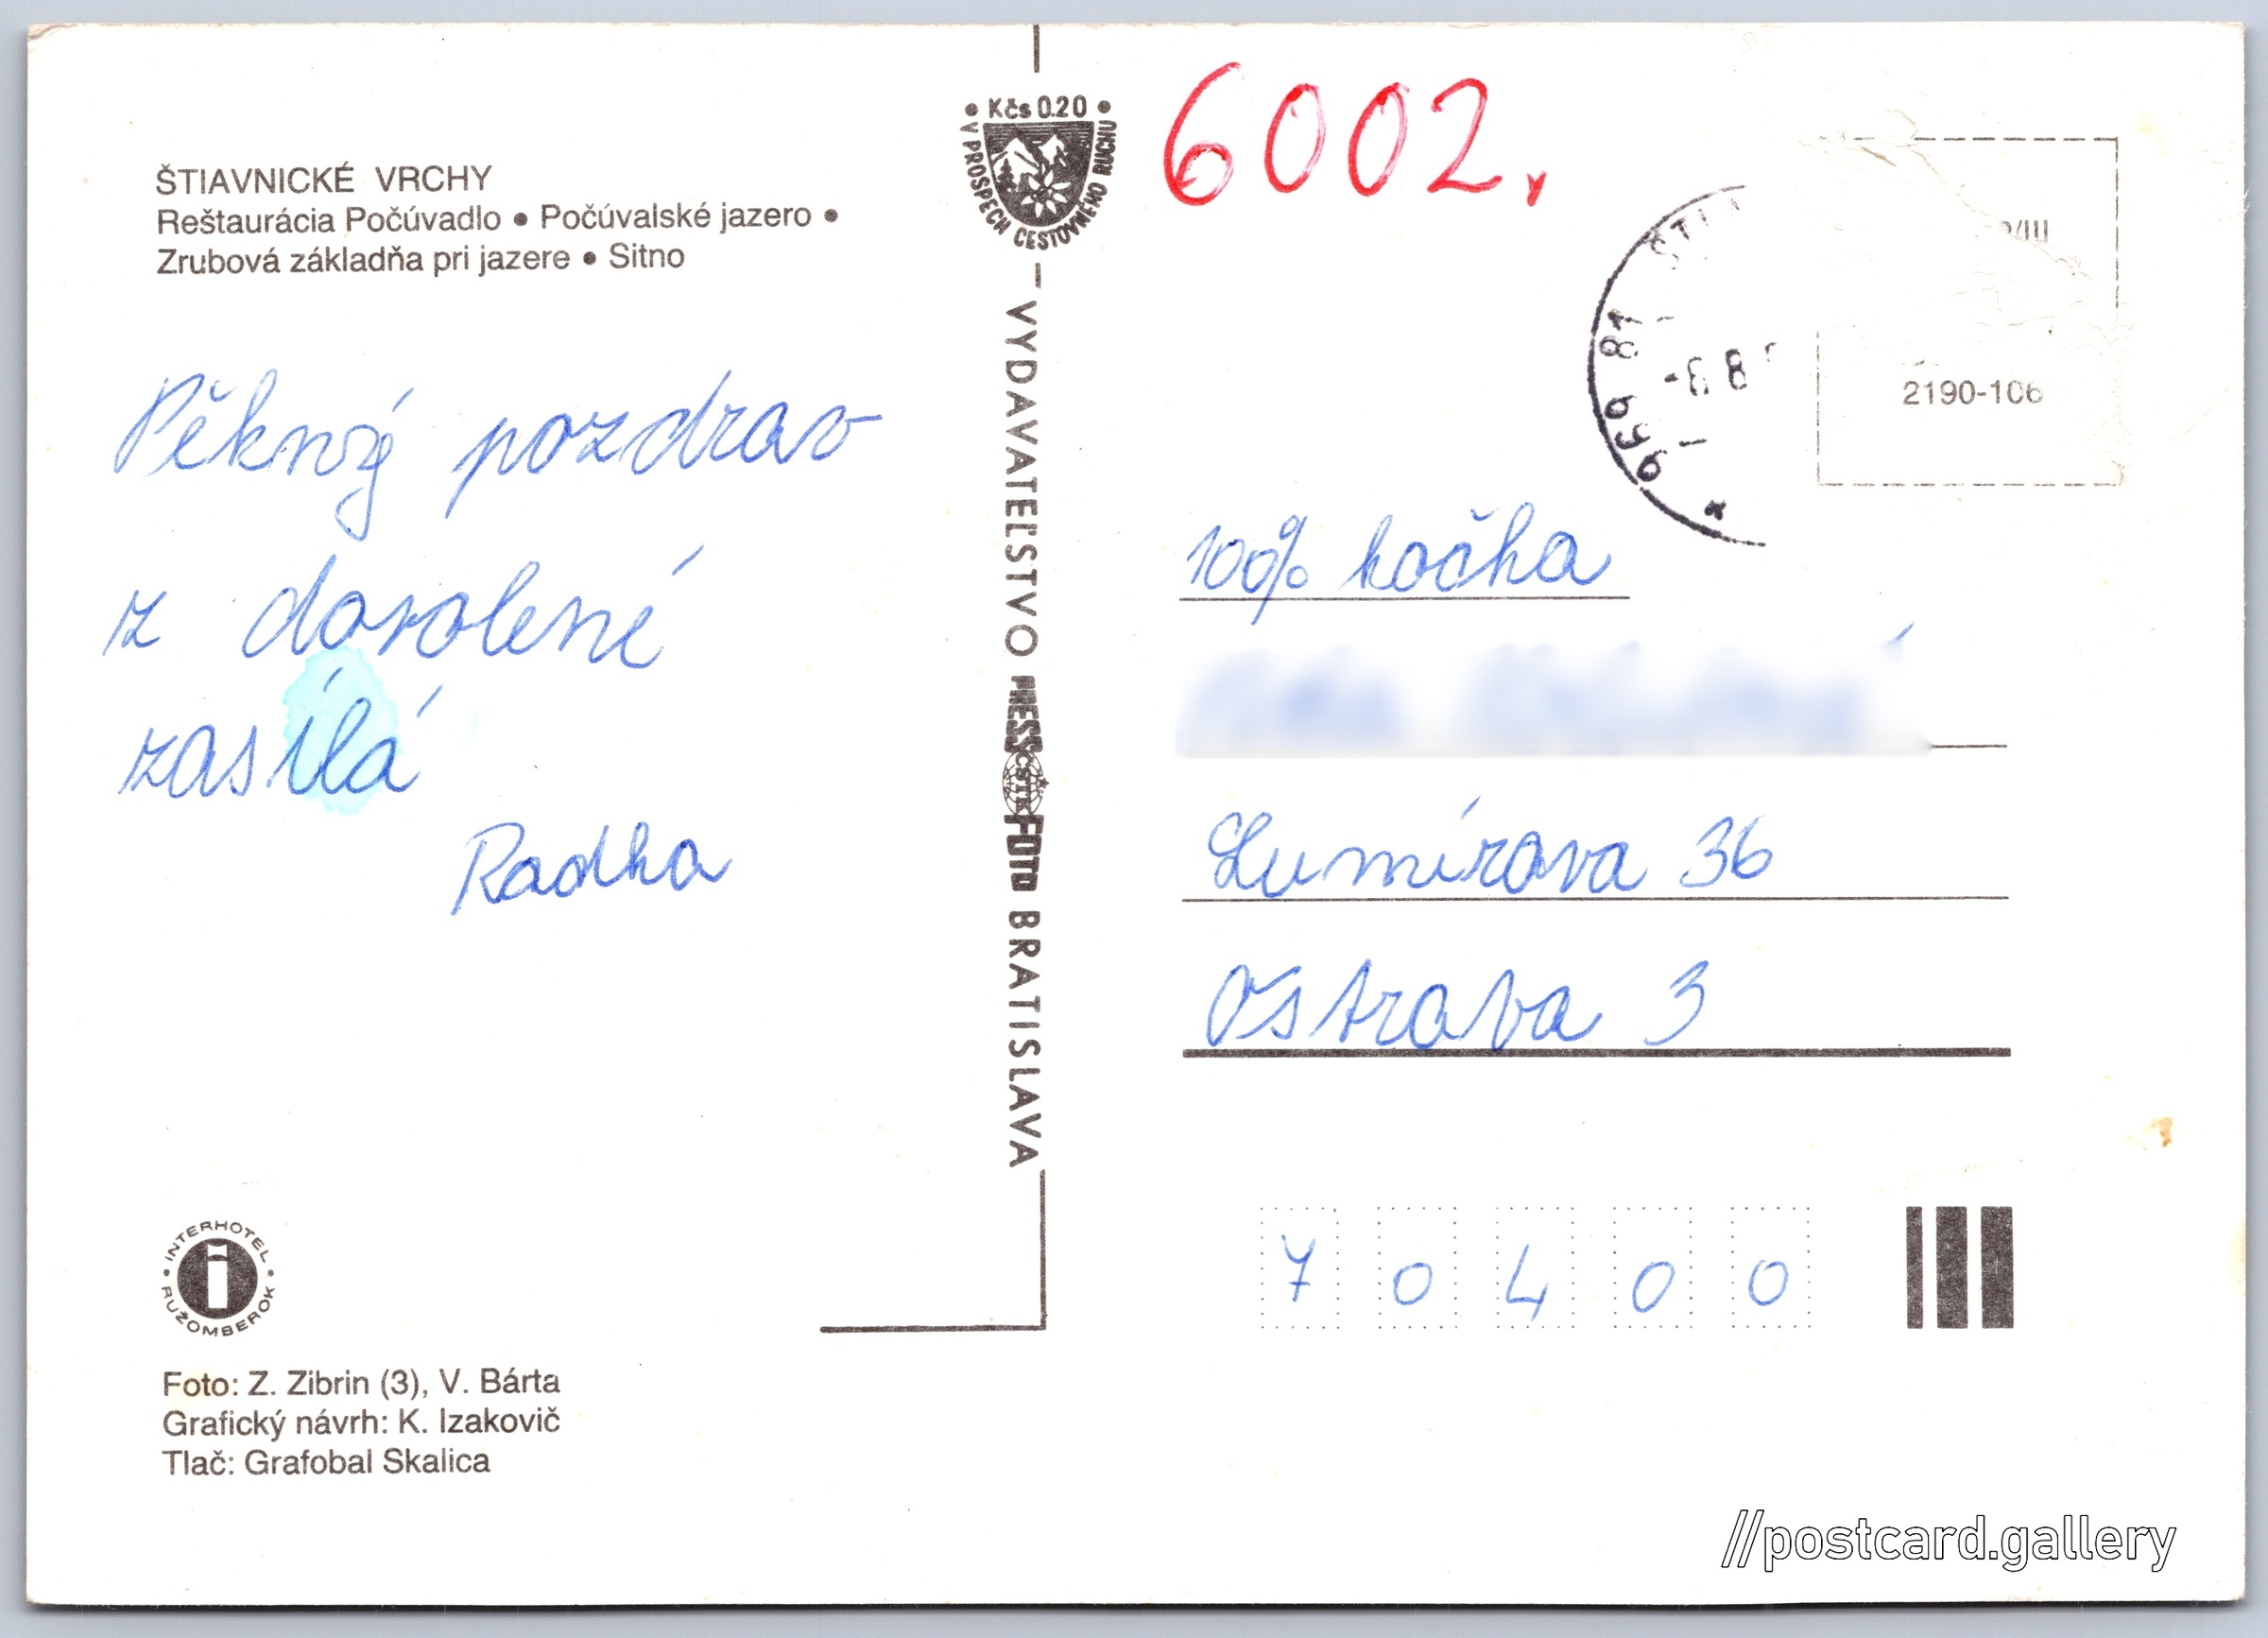 ŠTIAVNICKÉ VRCHY
Reštaurácia Počúvadlo • Počúvalské jazero •
Zrubová základňa pri jazere • Sitno
Pěkný pozdrav
z dovolené
zasílá
Radka
INTERHOTEL • RUŽOMBEROK •
Foto: Z. Zibrin (3), V. Bárta
Grafický návrh: K. Izakovič
Tlač: Grafobal Skalica
• Kčs 0.20 •
V PROSPECH CESTOVNÉHO RUCHU
VYDAVATEĽSTVO PRESSFOTO BRATISLAVA
ČSTK
6002.
969 81
2190-106
100% kočka
Lumírova 36
Ostrava 3
7 0 4 0 0
//postcard.gallery